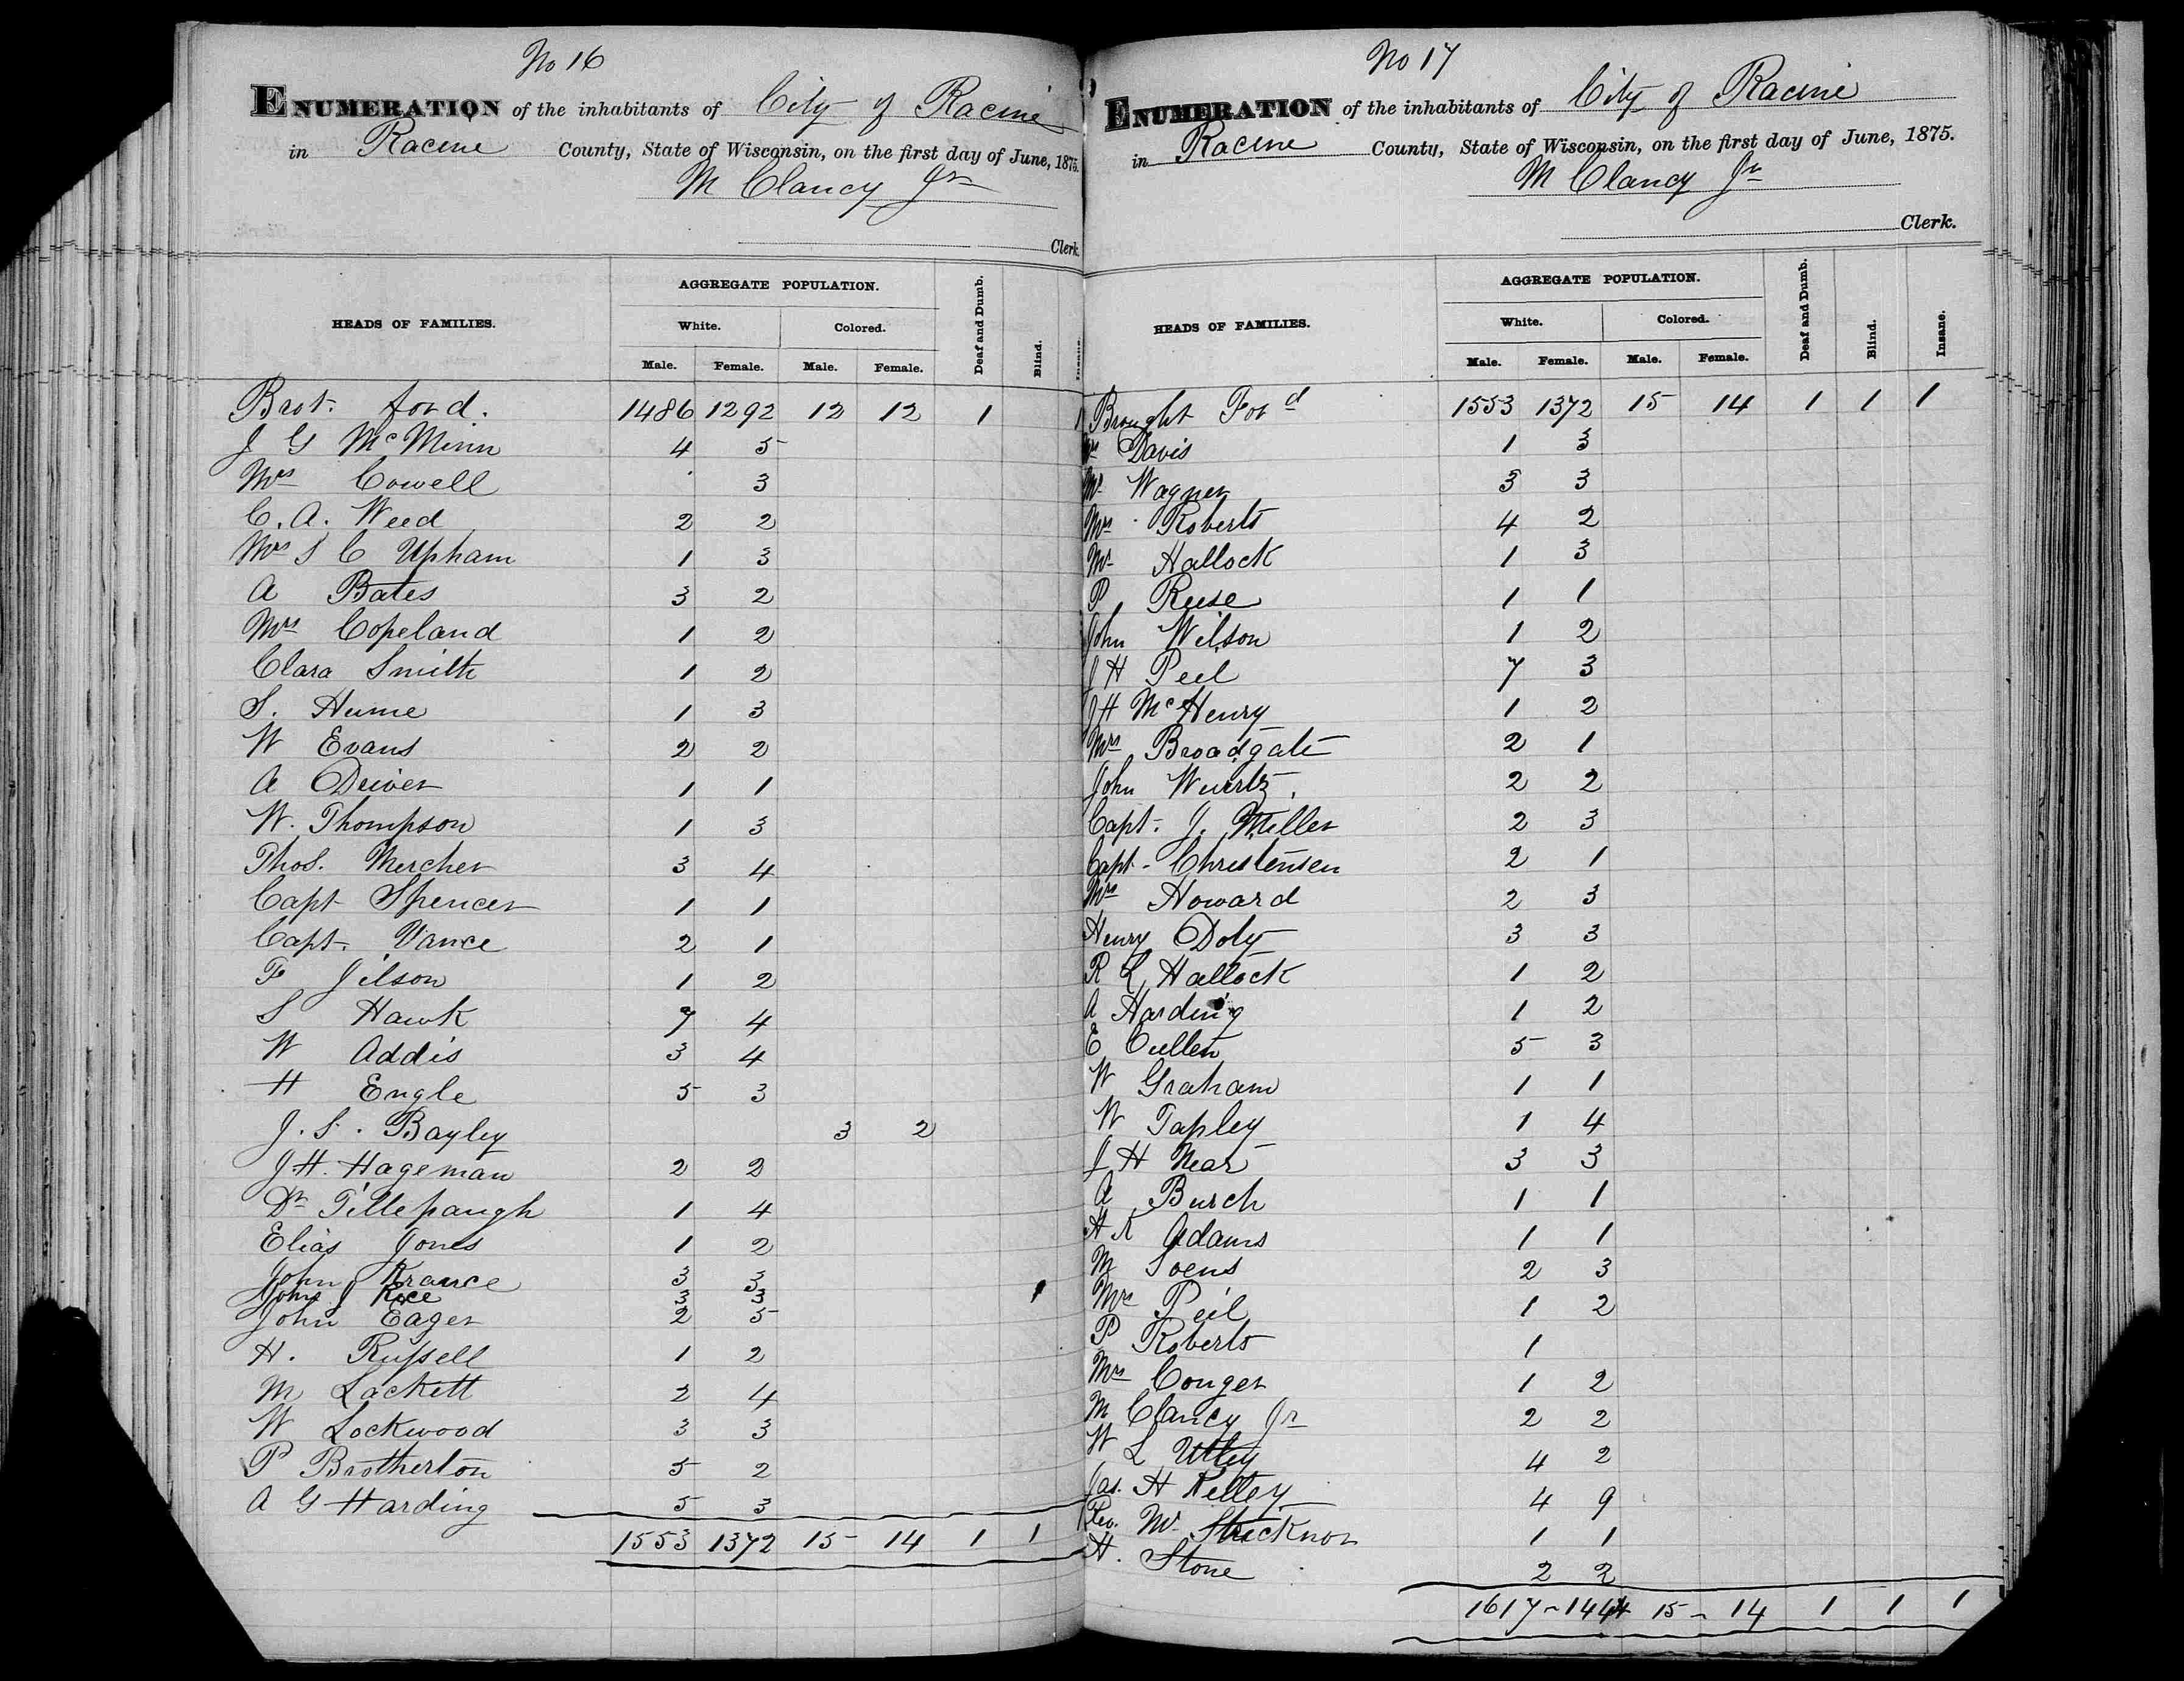 No 16
ENUMERATION of the inhabitants of City of Racine
in Racine County, State of Wisconsin, on the first day of June, 1875.
M Clancy Jr
Clerk.
HEADS OF FAMILIES. AGGREGATE POPULATION. Deaf and Dumb. Blind. Insane.
White. Colored.
Male. Female. Male. Female.
Brot. ford. 1486 1292 12 12 1 1
J G McMinn 4 5
Mrs Cowell 3
C. A. Weed 2 2
Mrs S C Upham 1 3
A Bates 3 2
Mrs Copeland 1 2
Clara Smith 1 2
S. Hume 1 3
W Evans 2 2
A Driver 1 1
W. Thompson 1 3
Thos. Mercher 3 4
Capt Spencer 1 1
Capt. Vance 2 1
F Jilson 1 2
S Hawk 7 4
W Addis 3 4
H Engle 5 3
J. S. Bayley 3 2
J. H. Hageman 2 2
Dr Tillepaugh 1 4
Elias Jones 1 2
John Krance 3 3
John J Rice 3 3 1
John Eager 2 5
H. Russell 1 2
M Lackett 2 4
W Lockwood 3 3
P Brotherton 5 2
A G Harding 5 3
1553 1372 15 14 1 1
No 17
ENUMERATION of the inhabitants of City of Racine
in Racine County, State of Wisconsin, on the first day of June, 1875.
M Clancy Jr
Clerk.
HEADS OF FAMILIES. AGGREGATE POPULATION. Deaf and Dumb. Blind. Insane.
White. Colored.
Male. Female. Male. Female.
Brought Ford 1553 1372 15 14 1 1 1
Davis 1 3
Mr Wagner 3 3
Mrs Roberts 4 2
Mr Hallock 1 3
P Reese 1 1
John Wilson 1 2
J H Peil 7 3
J H McHenry 1 2
Mrs Broadgate 2 1
John Wurtz 2 2
Capt. J. Miller 2 3
Capt. Christensen 2 1
Mrs Howard 2 3
Henry Doty 3 3
R L Hallock 1 2
A Harding 1 2
E Cullen 5 3
W Graham 1 1
W Tapley 1 4
J H Near 3 3
A Burch 1 1
H K Adams 1 1
M Soens 2 3
Mrs Peil 1 2
P Roberts 1
Mrs Conger 1 2
M Clancy Jr 2 2
W L Utley 4 2
Jas. H Kelley 4 9
Rev. Mr Stricknor 1 1
H. Stone 2 2
1617 1444 15 14 1 1 1